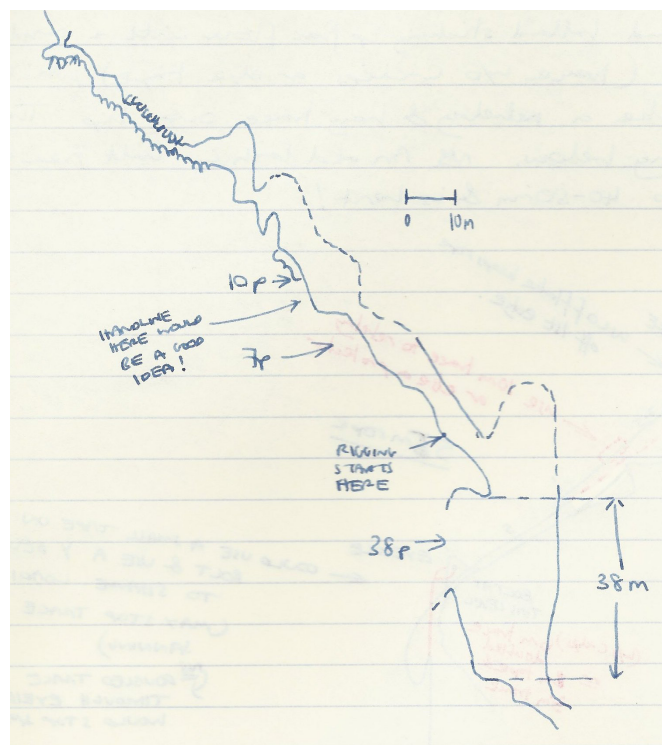 0 10m
10p
HANDLINE
HERE WOULD
BE A GOOD
IDEA!
7p
RIGGING
STARTS
HERE
38p
38m